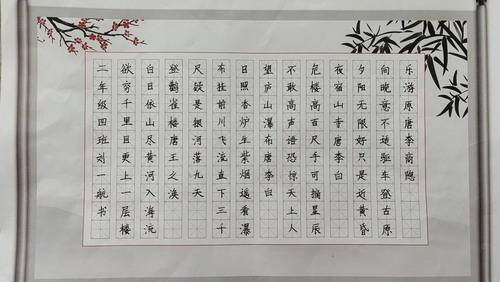 乐游原唐李商隐
向晚意不适驱车登古原
夕阳无限好只是近黄昏
夜宿山寺唐李白
危楼高百尺手可摘星辰
不敢高声语恐惊天上人
望庐山瀑布唐李白
日照香炉生紫烟遥看瀑
布挂前川飞流直下三千
尺疑是银河落九天
登鹳雀楼唐王之涣
白日依山尽黄河入海流
欲穷千里目更上一层楼
二年级四班刘一航书